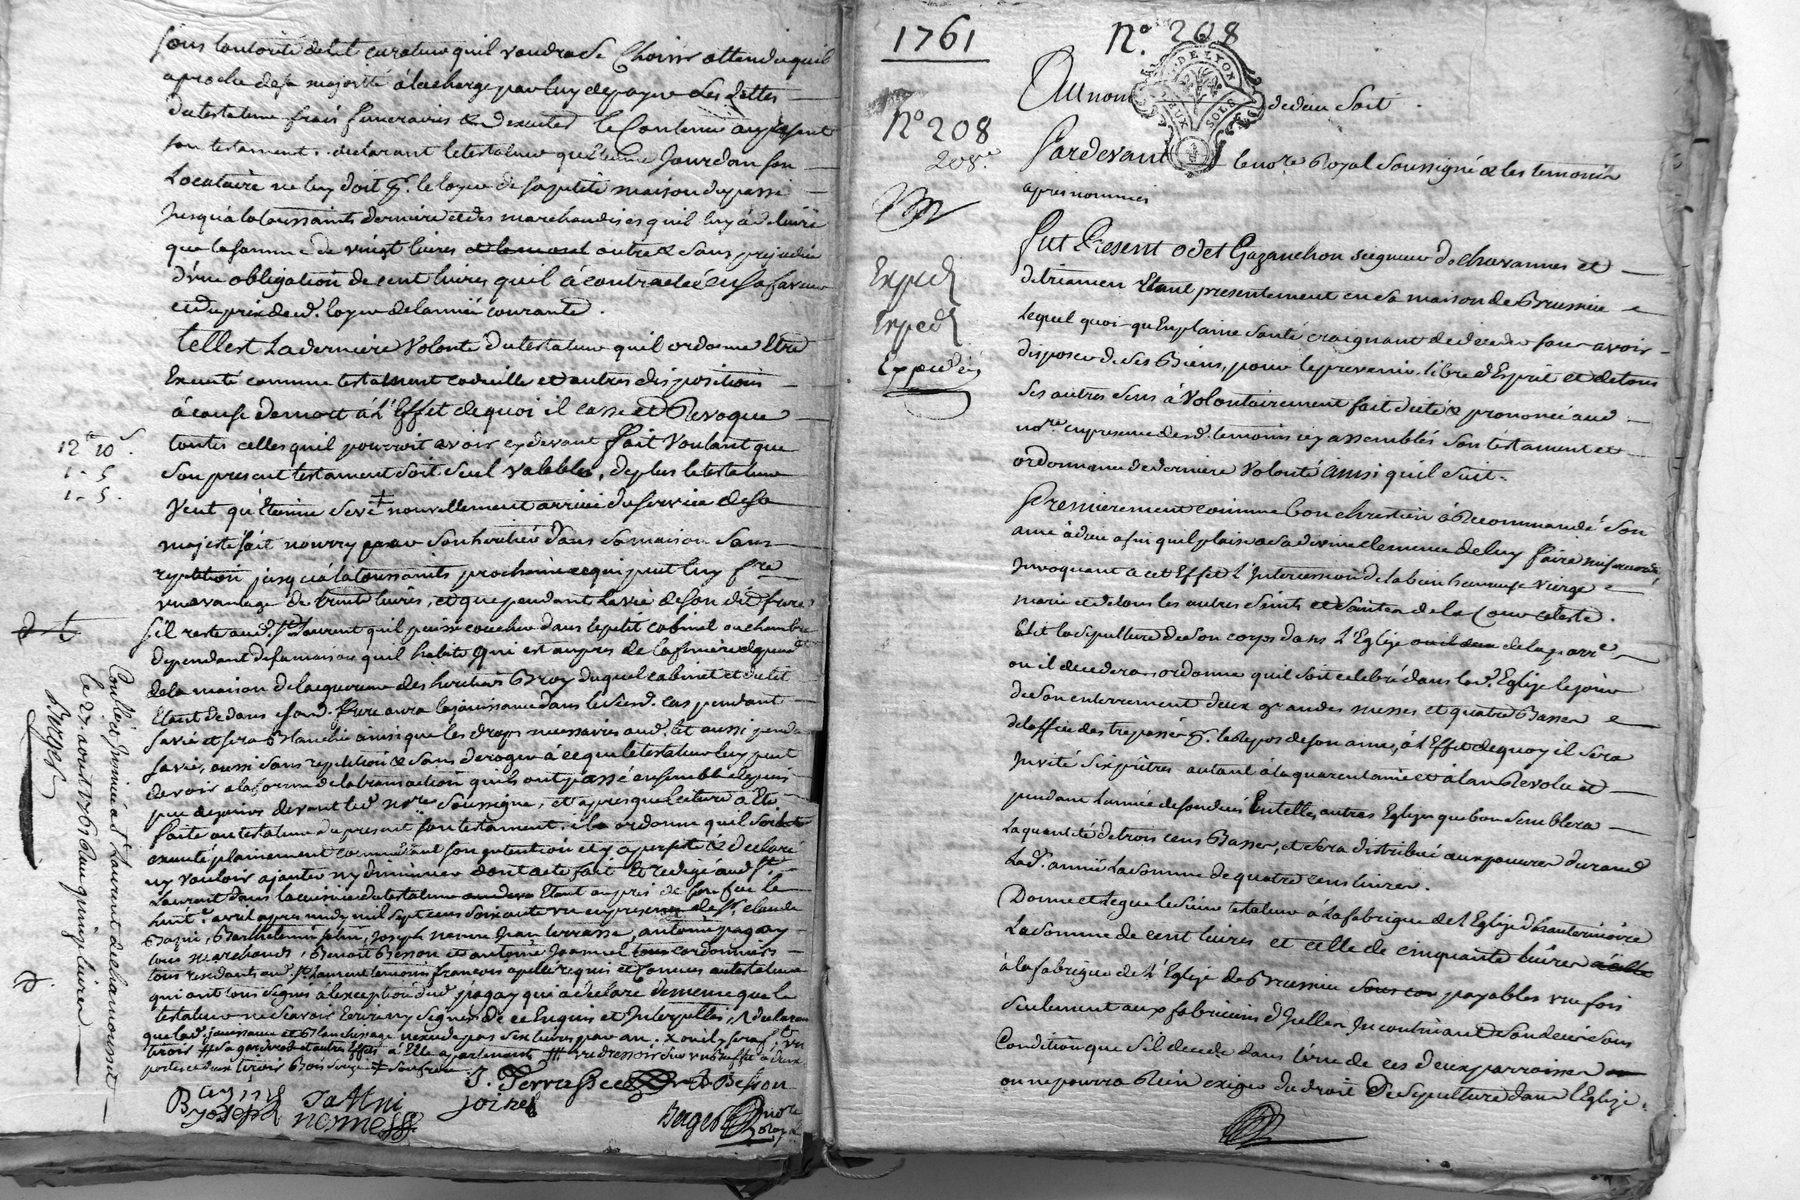 sous l'autorité de tel curateur quil voudra se Choisir attendu quil
aproche de sa majorité à la charge par luy de payer les dettes
du testateur frais funeraires & d'executer le Contenu au present
son testament. declarant le testateur que Jourdan son
Locataire ne luy doit pr. le loyer de sa petite maison du passé
jusqu'a la toussaints derniere et des marchandises quil luy a delivré
que la somme de vingt livres outre & sans prejudice
d'une obligation de cent livres quil à contractée en sa faveur
et du prix de ud. loyer de lannée courante.
telle est La derniere Volonté du testateur quil ordonne Etre
Executé comme testament codicille et autres dispositions
à cause de mort à L'Effet de quoi il casse et Revoque
toutes celles quil pourroit avoir cy devant fait Voulant que
Son present testament soit seul valable, de plus le testateur
Veut qu'Etienne nouvellement arrivé du service de sa
majesté soit nourry par son heritier dans sa maison sans
repetition jusqu'à la toussaints prochaine ce qui peut luy fre
un avantage de trente livres, et que pendant la vie de son dit frere
s'il reste aud. St Laurent quil puisse coucher dans le petit cabinet ou chambre
dependant de sa maison quil habite qui est aupres de la
de la maison de la des heritiers Broy duquel cabinet et du lit
Etant dedans sond. frere aura la jouissance dans led. cas pendant
sa vie et sera Blanchi ainsi que les draps necessaires aud. lit aussi pendt
sa vie, aussi sans repetition & sans deroger à ce que le testateur luy peut
devoir a la forme de la transaction quils ont passé ensemble depuis
peu de jours devant led. nore Soussigné, et apres que lecture à Eté
faite au testateur du present son testament, il a ordonné quil soit
executé plainement contenant son intention et y a persisté & declaré
ny vouloir ajouter ny diminuer dont acte fait et redigé aud. St
Laurent dans la cuisine du testateur Etant aupres de son feu le
huit avril apres midy mil sept cens soixante un en presence de Sr. claude
Bazin, Barthelemi Joseph neyme Jean terrasse, antoine pagay
tous marchands, Benoit Besson et antoine Joannel tous cordonniers
tous residants aud. St. Laurent temoins francois apellé requis et Connus au testateur
qui ont tous signés à lexception dud. pagay qui a declaré de meme que le
testateur ne scavoir Ecrire ny signer de ce Enquis et Interpellés, declarant
que lad. jouissance et Blanchissage nexcede pas six livres par an.
12 10
1 - 5
1 - 5
Con.llé et Insinué a St Laurent de chamousset
le 27 aoust 1761 Reçu quinze livres
Berger
J. Terrasse Besson
Joseph neyme
Berger nore
Royal

1761
No. 208
No 208
208.e
Exped
Exped
Expedié
DE LYON
DEUX SOLS
Au nom de dieu soit.
Pardevant le nore Royal Soussigné & les temoins
apres nommés
fut Present odet Gazanchon seigneur de chavannes et
de trianien Etant presentement en sa maison de Brussieu
Lequel quoi qu'En plaine santé craignant de deceder sans avoir
disposer de ses Biens, pour le prevenir, libre d'Esprit et de tous
ses autres sens à Volontairement fait dicté & prononcé aud
nore. en presence desd. temoins icy assemblés son testament et
ordonnance de derniere volonté ainsi quil suit.
Premierement comme bon chretien à Recommandé son
ame à dieu afin quil plaise a sa divine clemence de luy faire misericorde,
Invoquant a cet Effet L'Intercession de la bien heureuse vierge
marie et de tous les autres saints et saintes de la Cour celeste.
Elit la sepulture de son corps dans L'Eglise de la parre.
ou il decedera ordonne quil soit celebré dans lad. Eglise le jour
de son enterrement deux grandes messes et quatre Basses
de loffice des trepassés pr. le Repos de son ame, à l'Effet de quoy il sera
Invité six prêtres autant à la quarentaine et a lan Revolu et
pendant l'année de son deces En telles autres Eglises que bon semblera
la quantité de trois cens Basses, et sera distribué aux pauvres durand
Lad. année La somme de quatre cens livres.
Donne et legue le sieur testateur à la fabrique de l'Eglise d'hauterivoire
La somme de cent livres et celle de cinquante livres
à la fabrique de l'Eglise de Brussieu payables une fois
seulement aux fabriciens d'Icelles Incontinant son deces sous
Condition que s'il decede dans l'une de ces deux parroisses
on ne pourra Rien exiger du droit de sepulture dans l'Eglise.